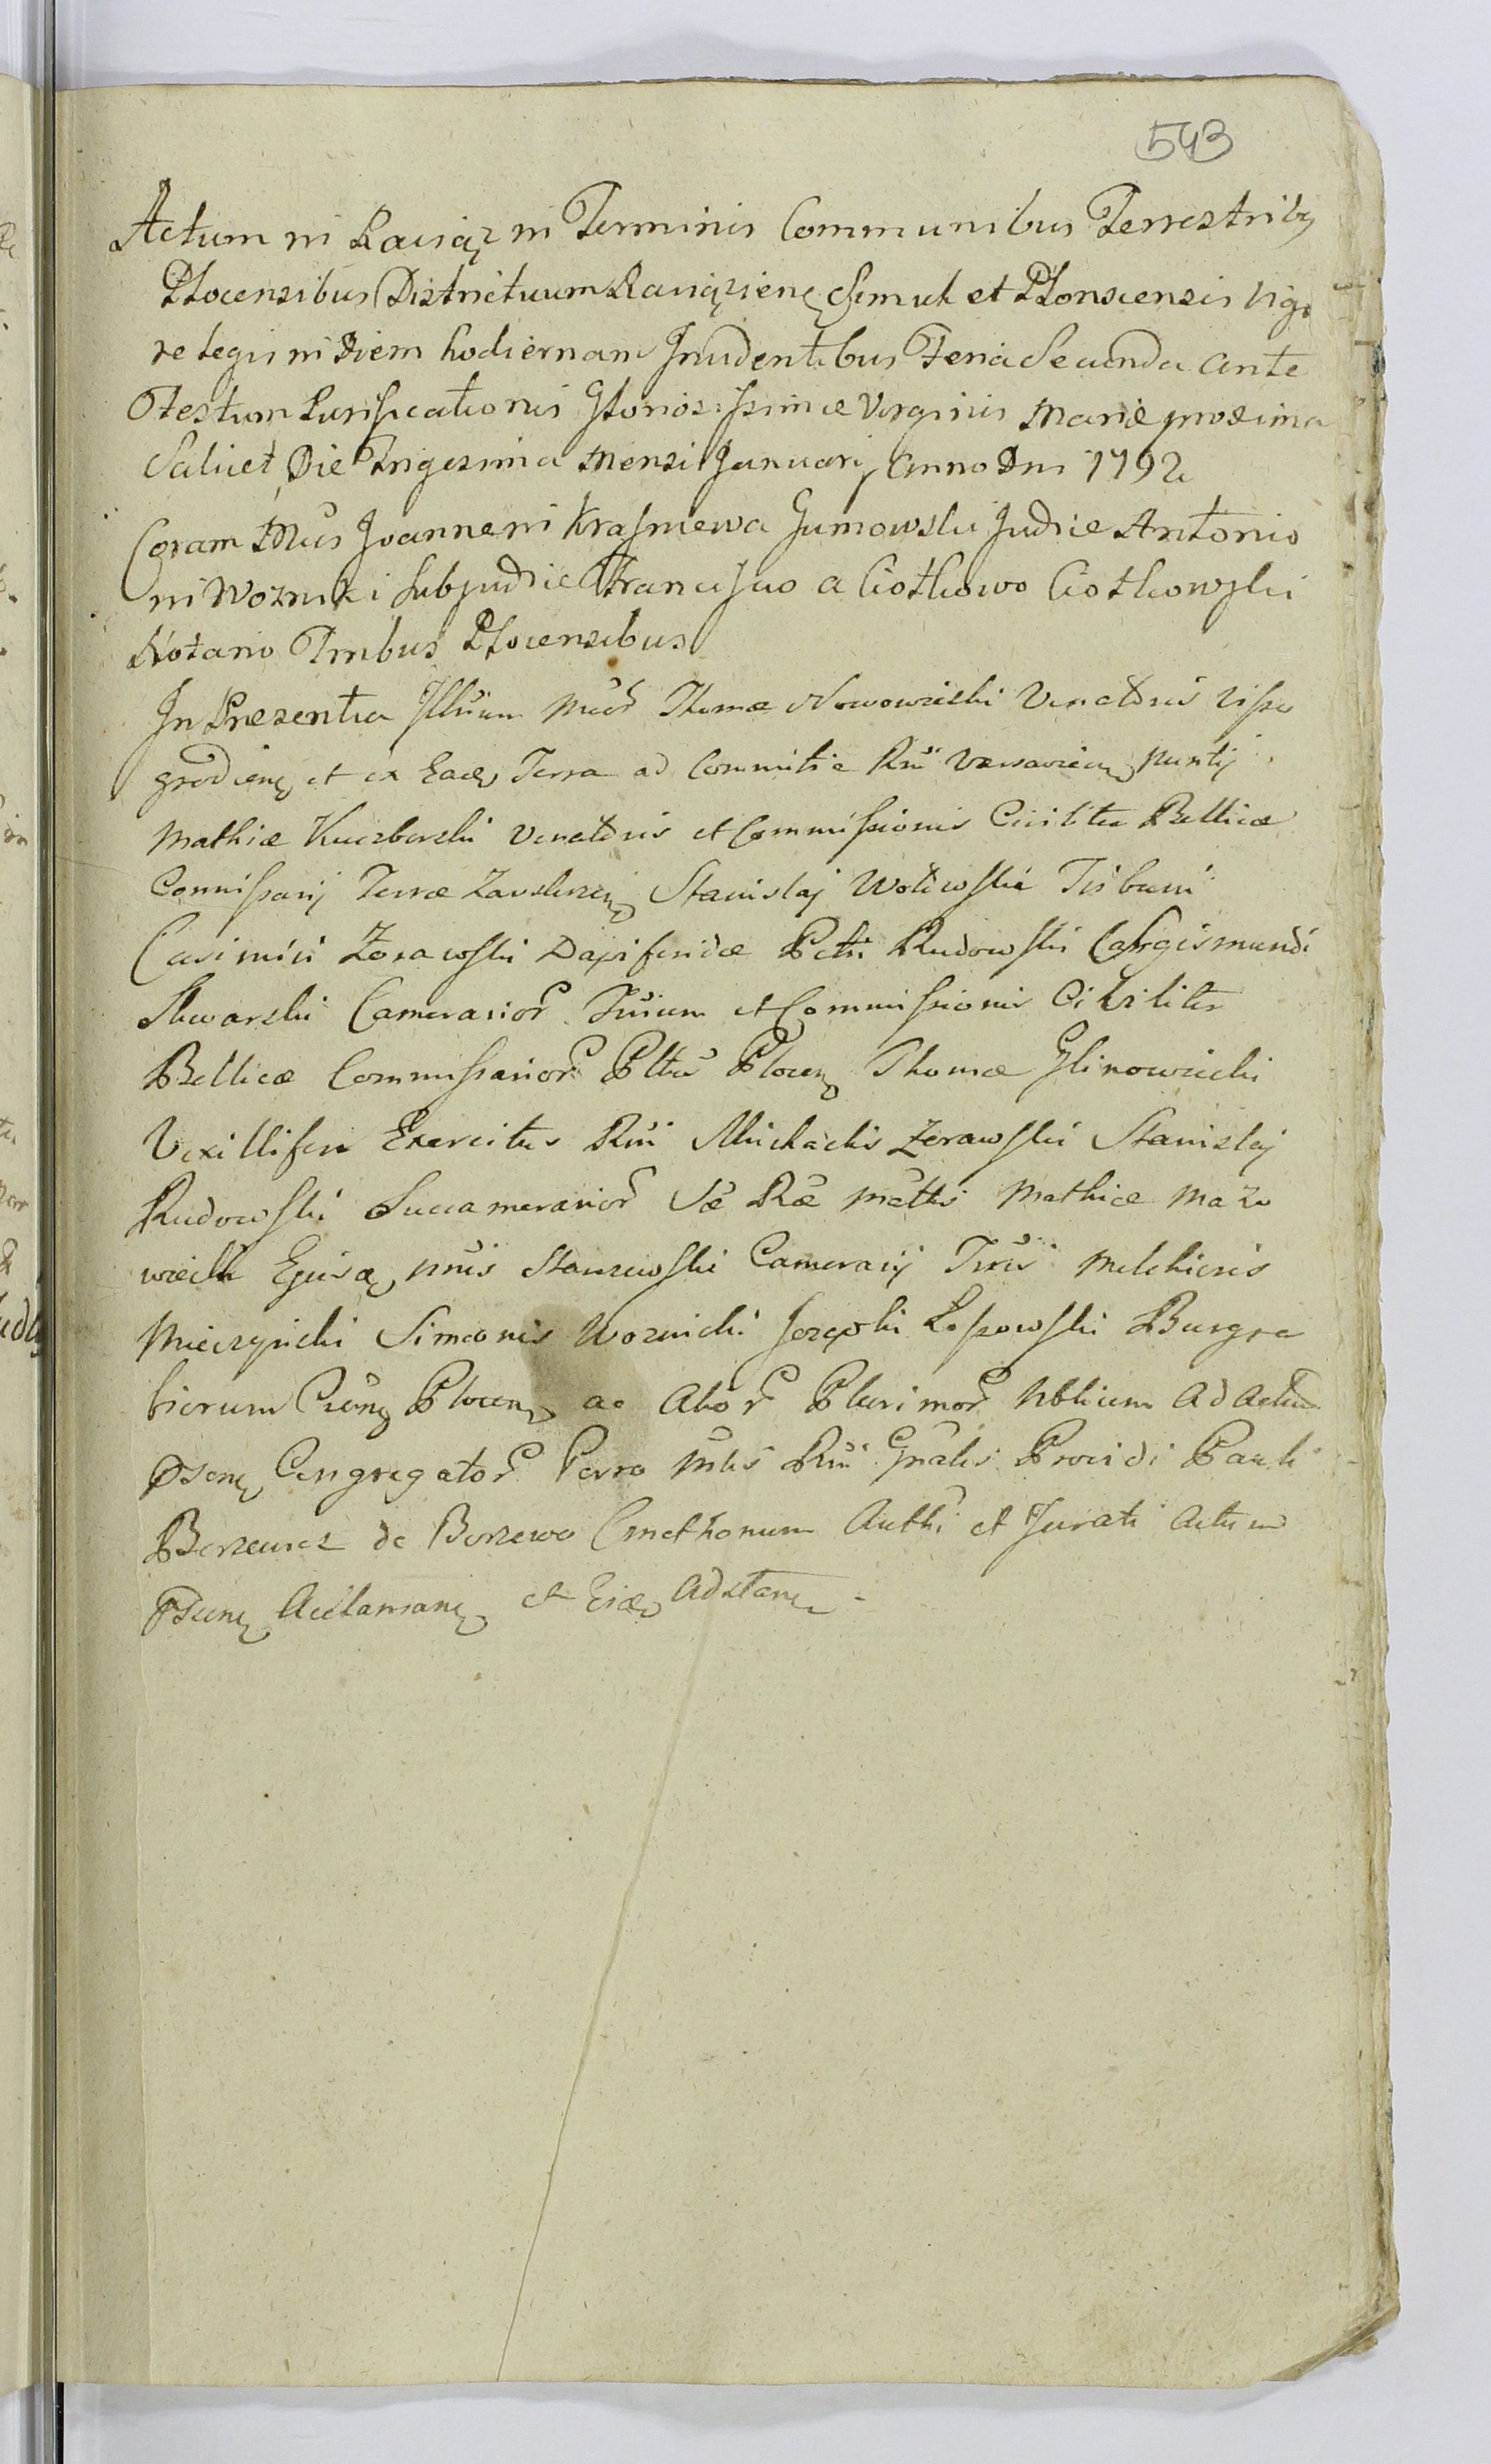 543
Actum in Raciąz in Terminis Communibus Terrestribq
Plocensibus Districtuum Raciązienę Simul et Plonscensis Vigo
re Legis in Diem hodiernam Incidentibus Feria Secunda ante
Festum Purificationis Gloriosissimæ Virginis Mariæ proxima
Scilicet Die Trigesima Mensi Januarij Anno Dni 1792
Coram Mcis Joanne in Krasniewa Gumowski Judice Antonio
in Wozniki Subjudice Francisco a Ciotkowo Ciotkowski
Notario Trribus Plocensibus
In Præsentia Illrium Mcor Thomæ Nowowieski Venatoris Visso
grodienę et ex Eadę Terra ad Commitia Rni Varsavienę Nuntij
Mathiæ Kuczborski Venatoris et Commissionis Civilito Bellicæ
Commissarij Terræ Zawskrzenę Stanislaj Wołowski Tribuni
Casimiri Zorawski Dapiferidæ Petri Rudowski Sigismundi
Skwarski Camerarior Trrium et Commissionis Civilito
Bellicæ Commissarior Pltus Plocenę Thomæ Glinowiecki
Vexilliferi Exercitus Rni Michaelis Zorawski Stanislaj
Rudowski Succamerarior Sæ Ræ Mattis Mathiæ Mazo
wiecki Ejusdę Stanzewski Camerarij Trris Melchioris
Mierzynski Simeonis Woznicki Josephi Lossowski Burgra
biorum Plocenę ac Alior Plurimor Nbilium Ad Actum
Psenę Congregator Porro Mtis Rni Gnalis Providi Pauli
de Borzewo Cmethonum Authi et Jurati Actum
Psenę Acclamanę et Eidę Adstanę